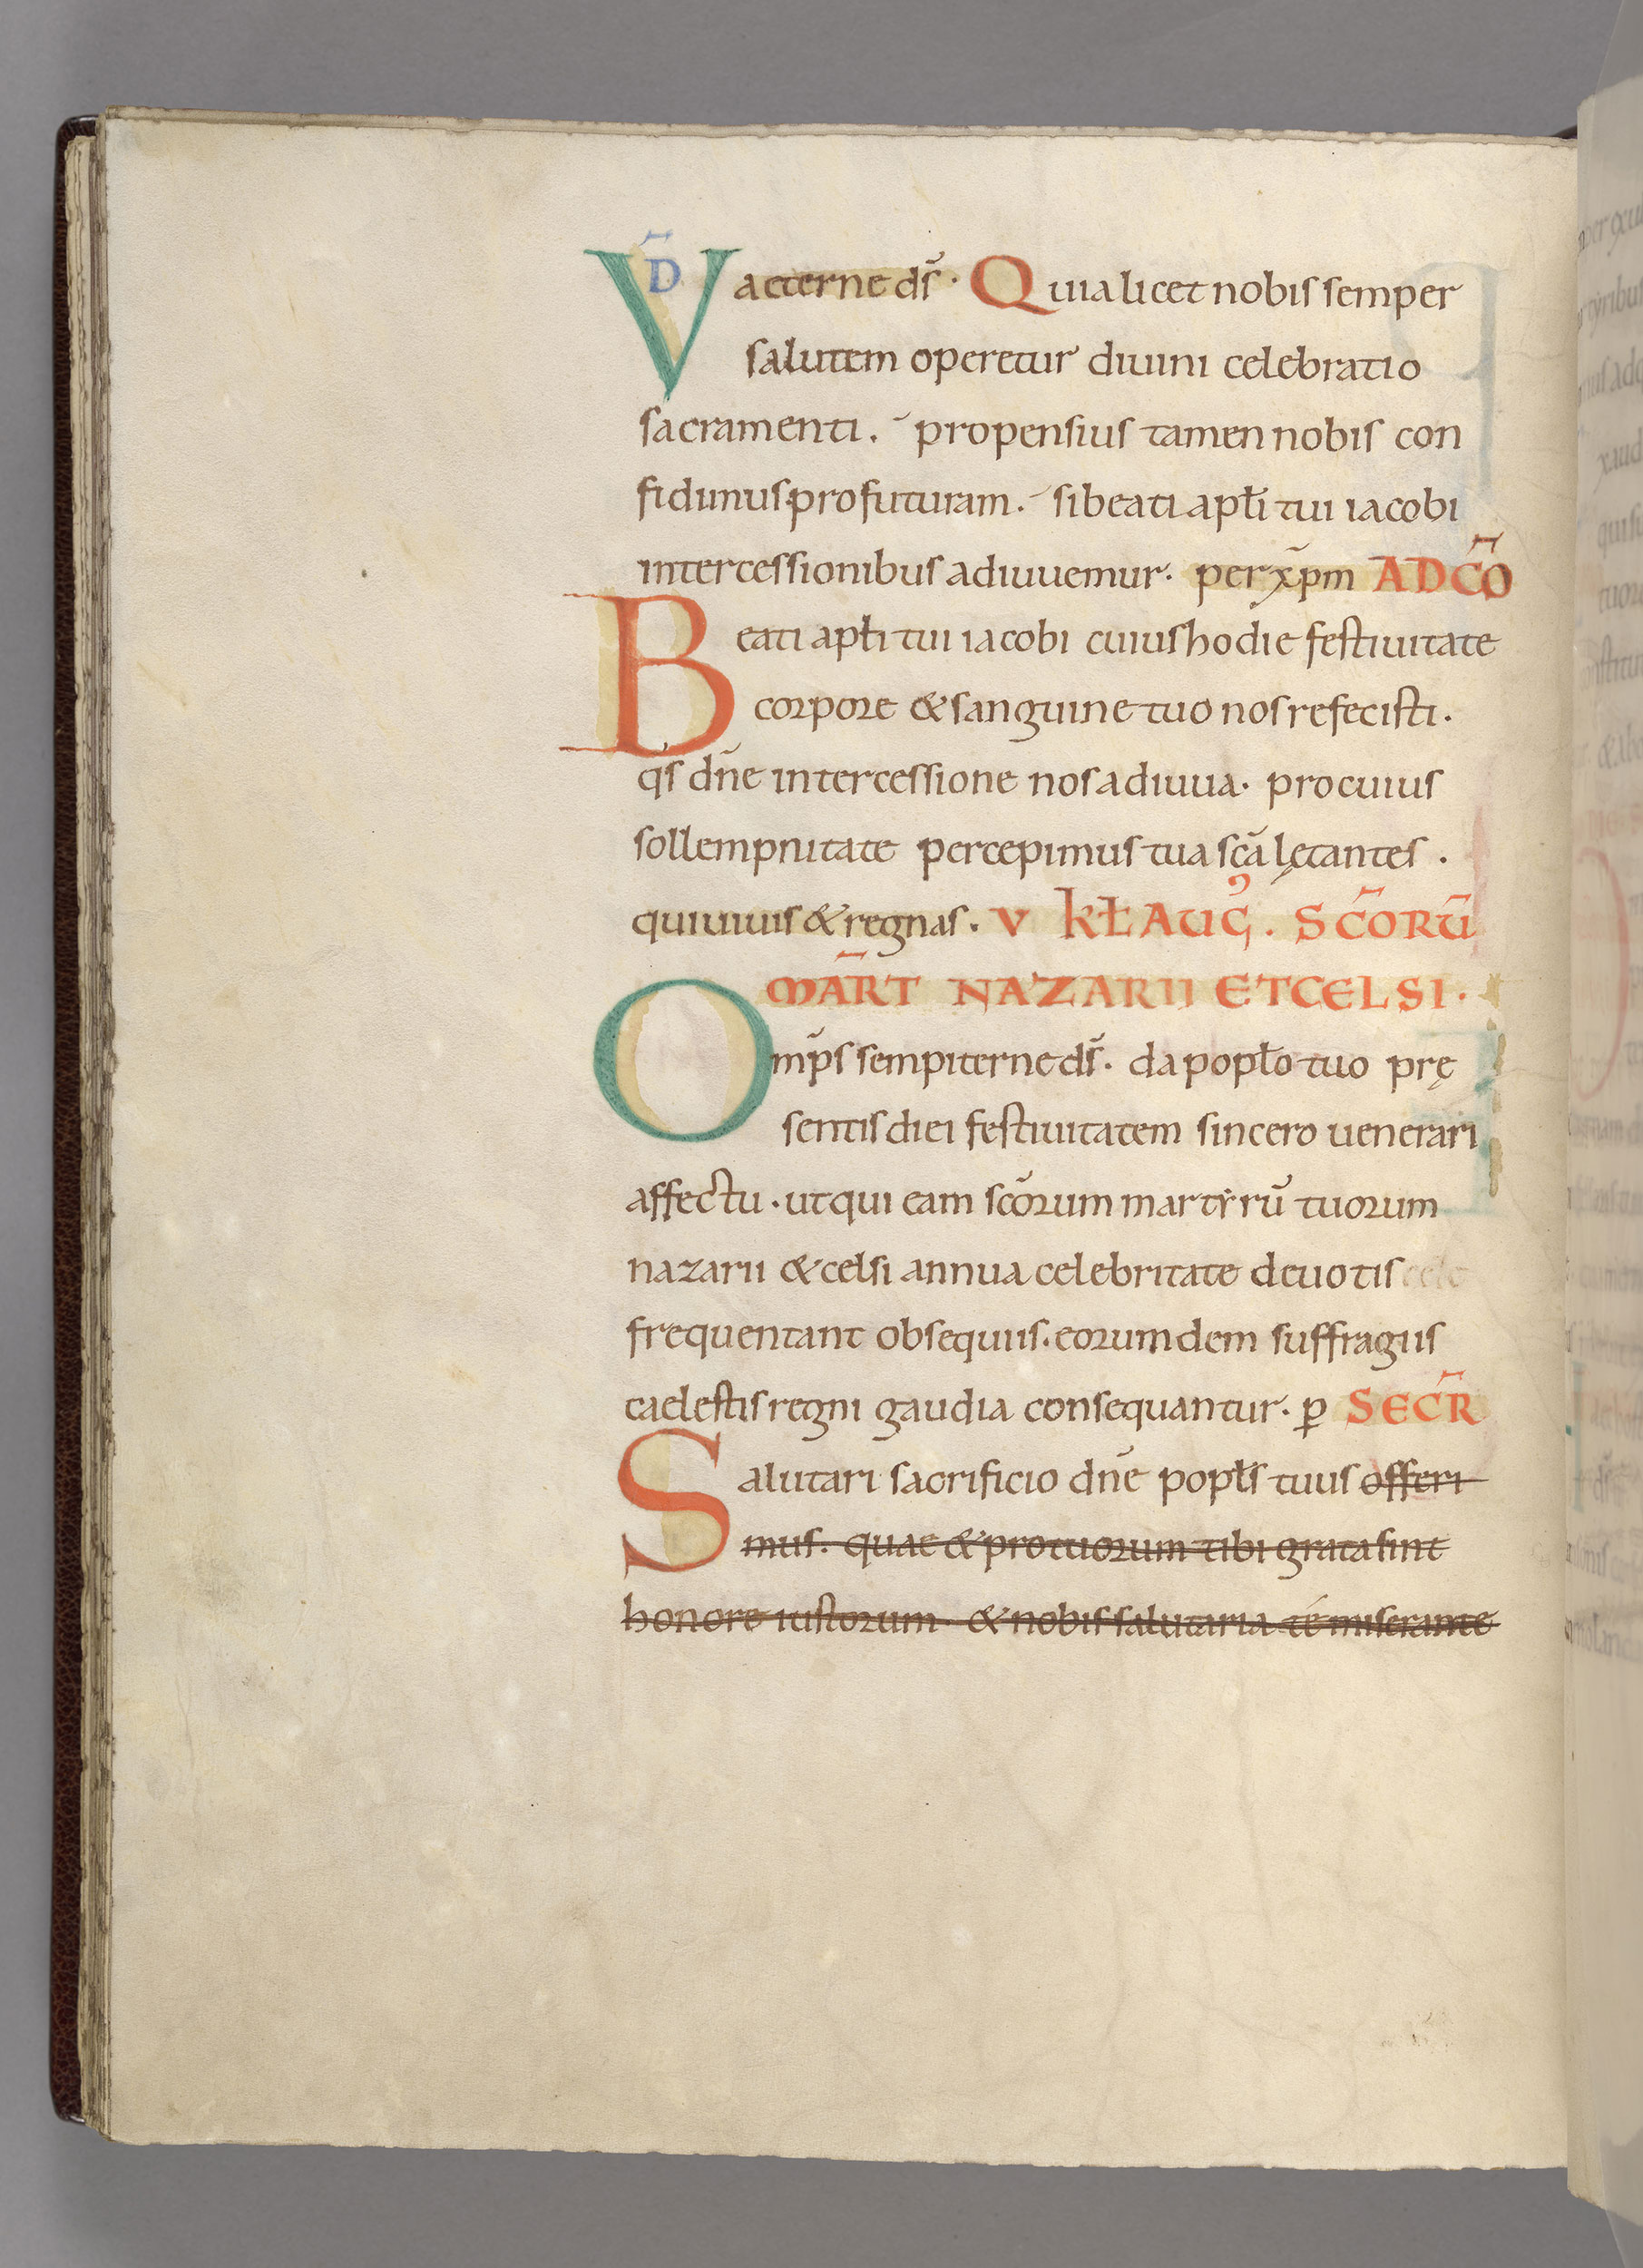 VD̄ aeterne ds̄. Quia licet nobis semper
salutem operetur diuini celebratio
sacramenti. propensius tamen nobis con
fidimus profuturam. si beati apƚi tui iacobi
intercessionibus adiuuemur. per xp̄m AD CŌ
Beati apƚi tui iacobi cuius hodie festiuitate
corpore & sanguine tuo nos refecisti.
qs̄ dn̄e intercessione nos adiuua. pro cuius
sollempnitate percepimus tua sc̄a lętantes.
qui uiuis & regnas. V KƚAUG̓. SC̄ORŪ
MĀRT NAZARII ET CELSI.
Omp̄s sempiterne ds̄. da popƚo tuo prę
sentis diei festiuitatem sincero uenerari
affectu. ut qui eam sc̄orum martẏrū tuorum
nazarii & celsi annua celebritate deuotis cele
frequentant obsequiis. eorumdem suffragiis
caelestis regni gaudia consequantur. ꝑ SECR̄
Salutari sacrificio dn̄e popƚs tuus offeri
mus. quae & pro tuorum tibi grata sint
honore iustorum. & nobis salutaria té miserante